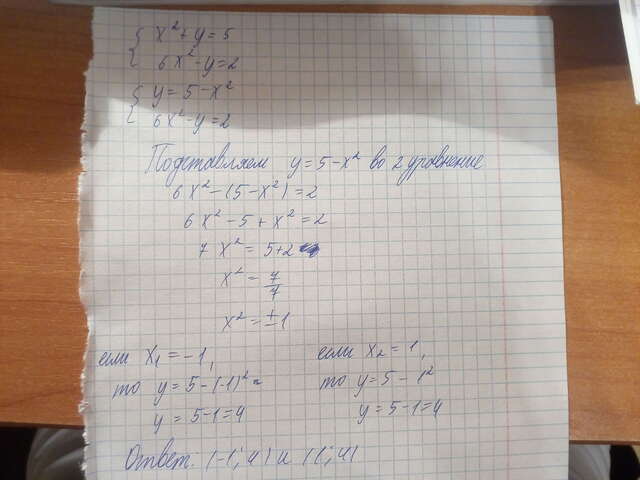 { x² + y = 5
{ 6x² - y = 2
{ y = 5 - x²
{ 6x² - y = 2
Подставляем y = 5 - x² во 2 уравнение
6x² - (5 - x²) = 2
6x² - 5 + x² = 2
7x² = 5+2
x² = 7/7
x² = ±1
если x₁ = -1, если x₂ = 1,
то y = 5 - (-1)² = то y = 5 - 1²
y = 5-1=4 y = 5-1=4
Ответ: (-1; 4) и (1; 4)